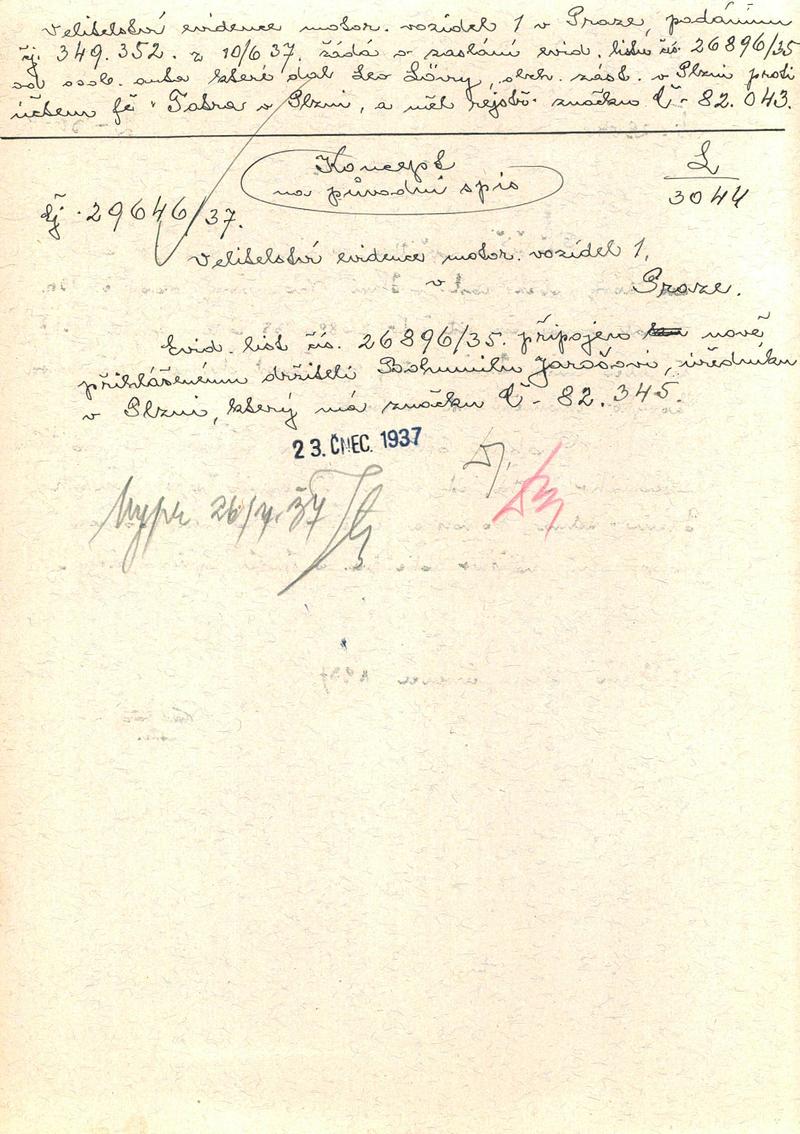 Velitelství evidence motor. vozidel 1 v Praze, podáním
čj. 349.352. z 10/6 37. žádá o zaslání evid. listu čís. 26896/35
od osob. auta které dal Leo Löwy, obch. zást. v Plzni proti
účtem fě "Tatra v Plzni, a měl rejstř. značku Č - 82.043.
Koncept
na původní spis
L
3044
čj. 29646/37.
Velitelství evidence motor. vozidel 1,
v
Praze.
Evid. list čís. 26896/35. připojen nově
přihlášenému držiteli Bohumilu Jarošovi, úředníku
v Plzni, který má značku Č - 82.345.
23. ČNEC. 1937
Vypr 26/7. 37